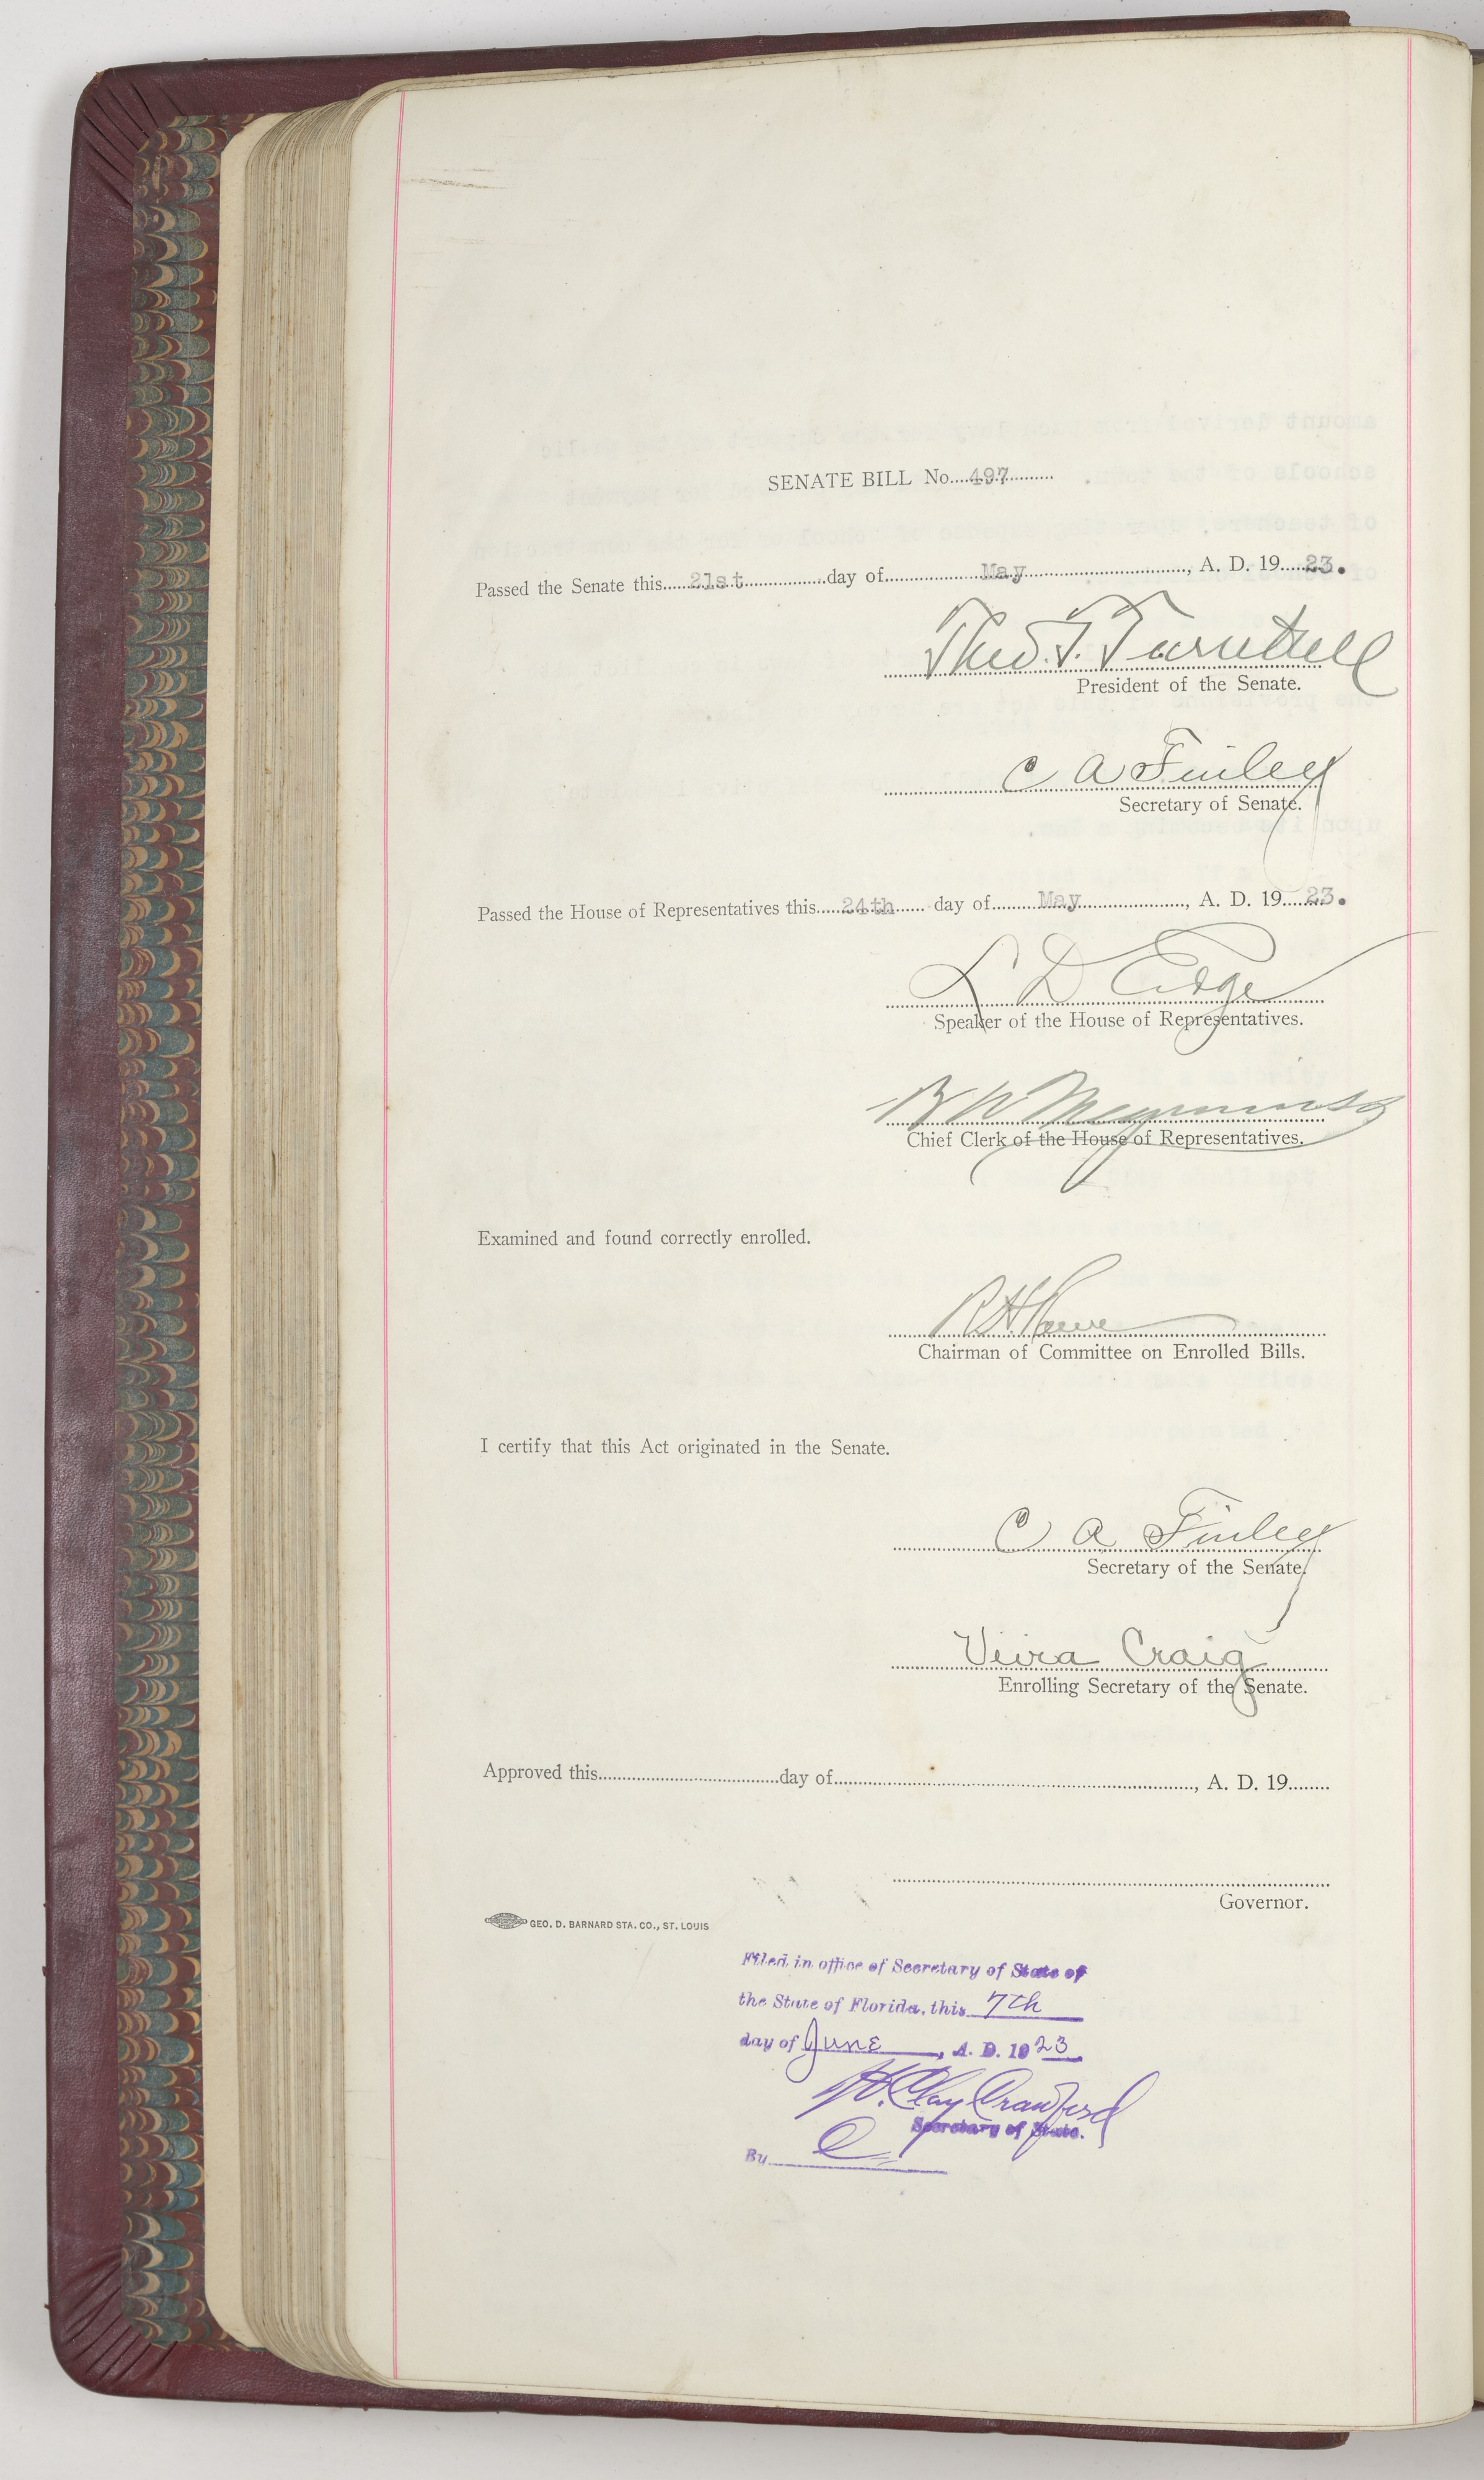 SENATE BILL No. 497
Passed the Senate this 21st day of May, A. D. 19 23.
Theo. T. Turnbull
President of the Senate.
C A Finley
Secretary of Senate.
Passed the House of Representatives this 24th day of May, A. D. 19 23.
L D Edge
Speaker of the House of Representatives.
B W
Chief Clerk of the House of Representatives.
Examined and found correctly enrolled.
R H Rowe
Chairman of Committee on Enrolled Bills.
I certify that this Act originated in the Senate.
C A Finley
Secretary of the Senate.
Craig
Enrolling Secretary of the Senate.
Approved this day of , A. D. 19
Governor.
GEO. D. BARNARD STA. CO., ST. LOUIS
Filed in office of Secretary of State of
the State of Florida, this 7th
day of June, A. D. 1923
H. Clay Crawford
Secretary of State.
By C